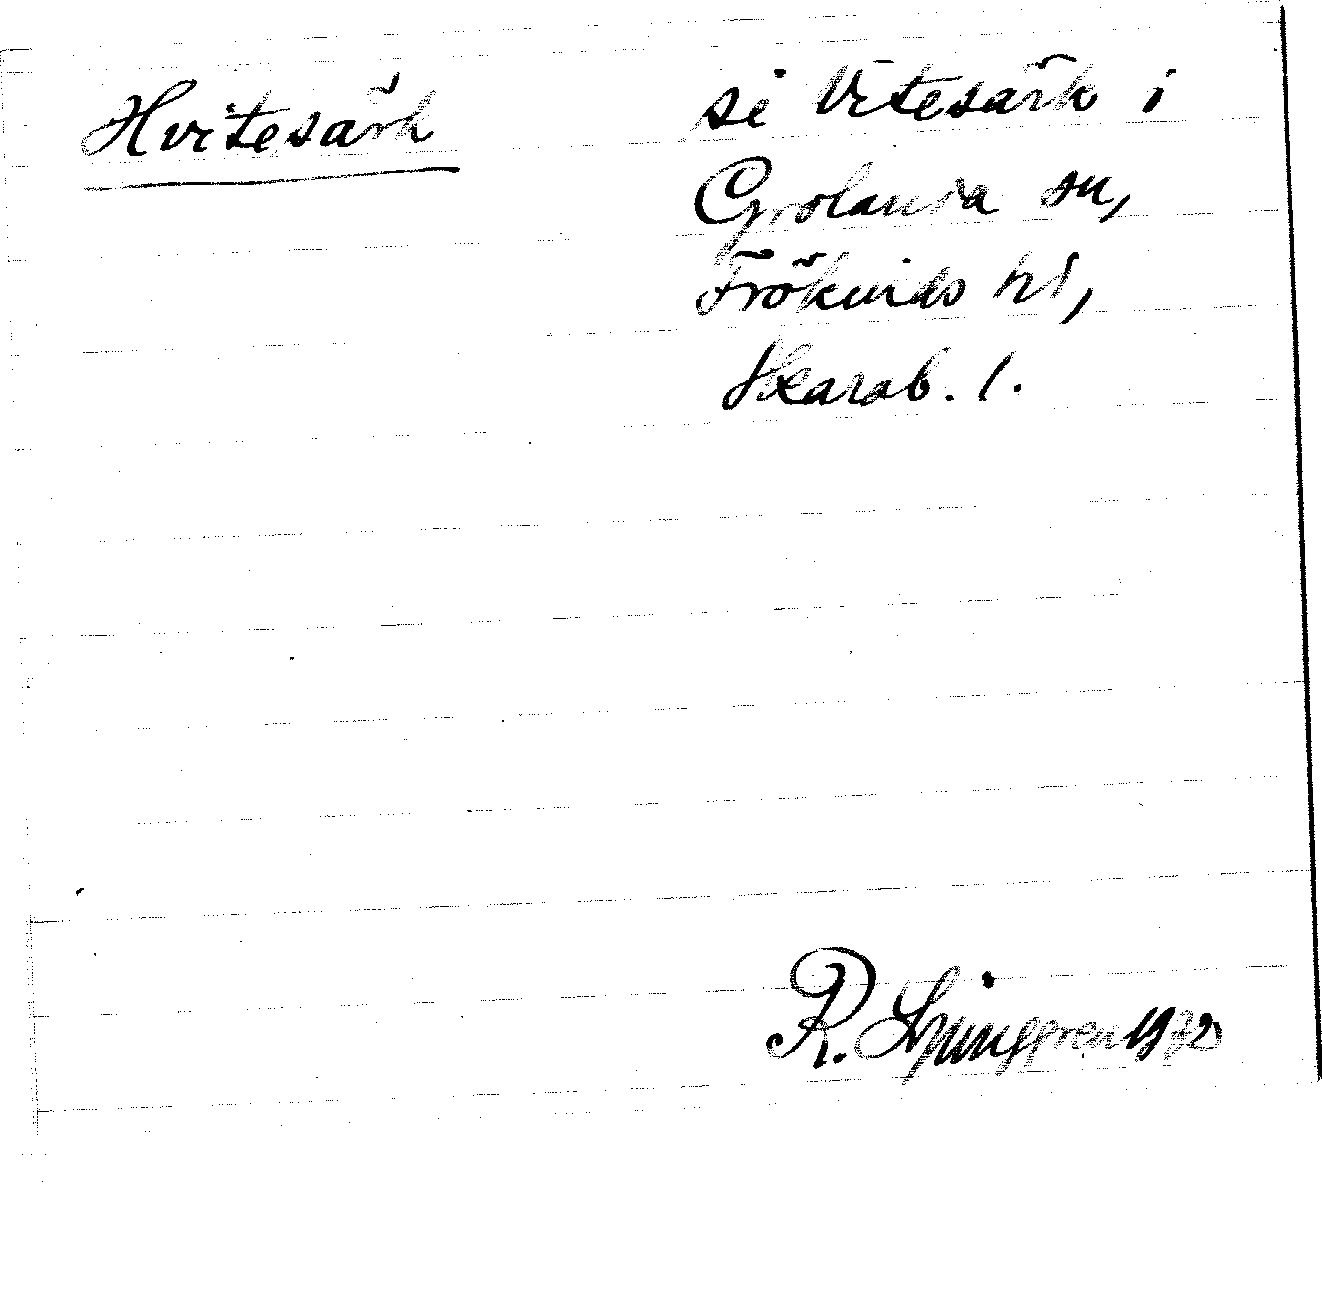 Hvitesärk
se Vitesärk i
Grolanda sn,
Frökinds hd,
Skarab. l.
R. Ljunggren 1972